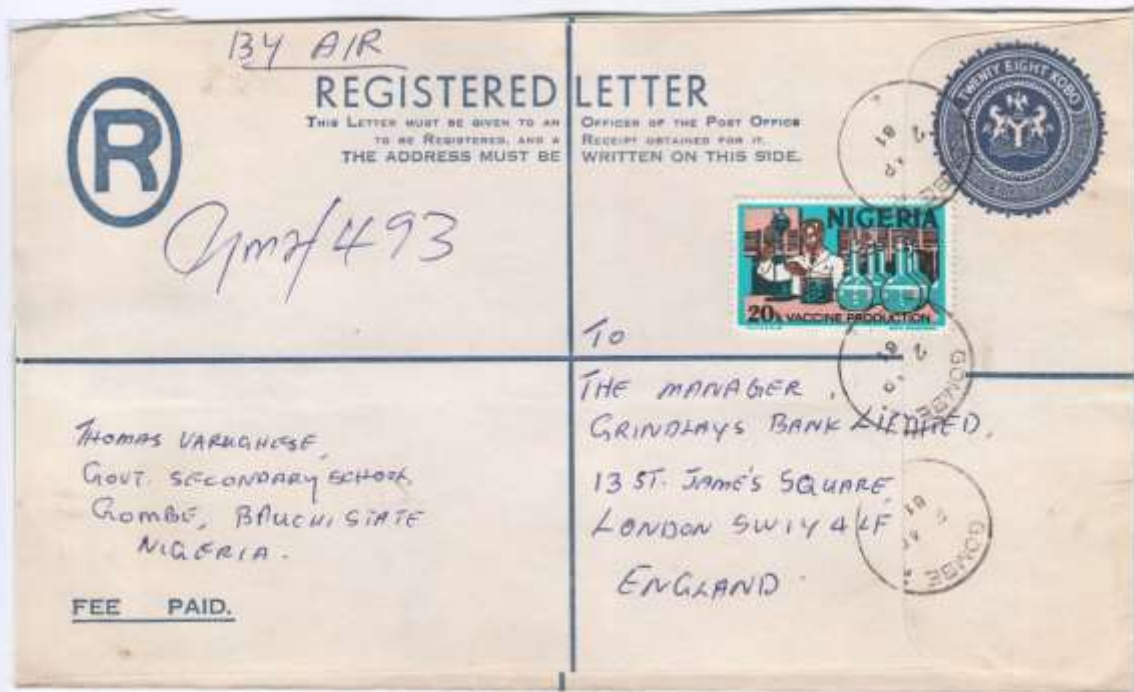 BY AIR
REGISTERED LETTER
THIS LETTER MUST BE GIVEN TO AN OFFICER OF THE POST OFFICE
TO BE REGISTERED, AND A RECEIPT OBTAINED FOR IT.
THE ADDRESS MUST BE WRITTEN ON THIS SIDE.
R
TWENTY EIGHT KOBO
493
NIGERIA
20k VACCINE PRODUCTION
GOMBE
81
GOMBE
81
GOMBE
81
TO
THE MANAGER,
GRINDLAYS BANK LIMITED,
13 ST. JAMES SQUARE,
LONDON SW1Y 4LF
ENGLAND
THOMAS VARUGHESE,
GOVT. SECONDARY SCHOOL,
GOMBE, BAUCHI STATE
NIGERIA.
FEE PAID.